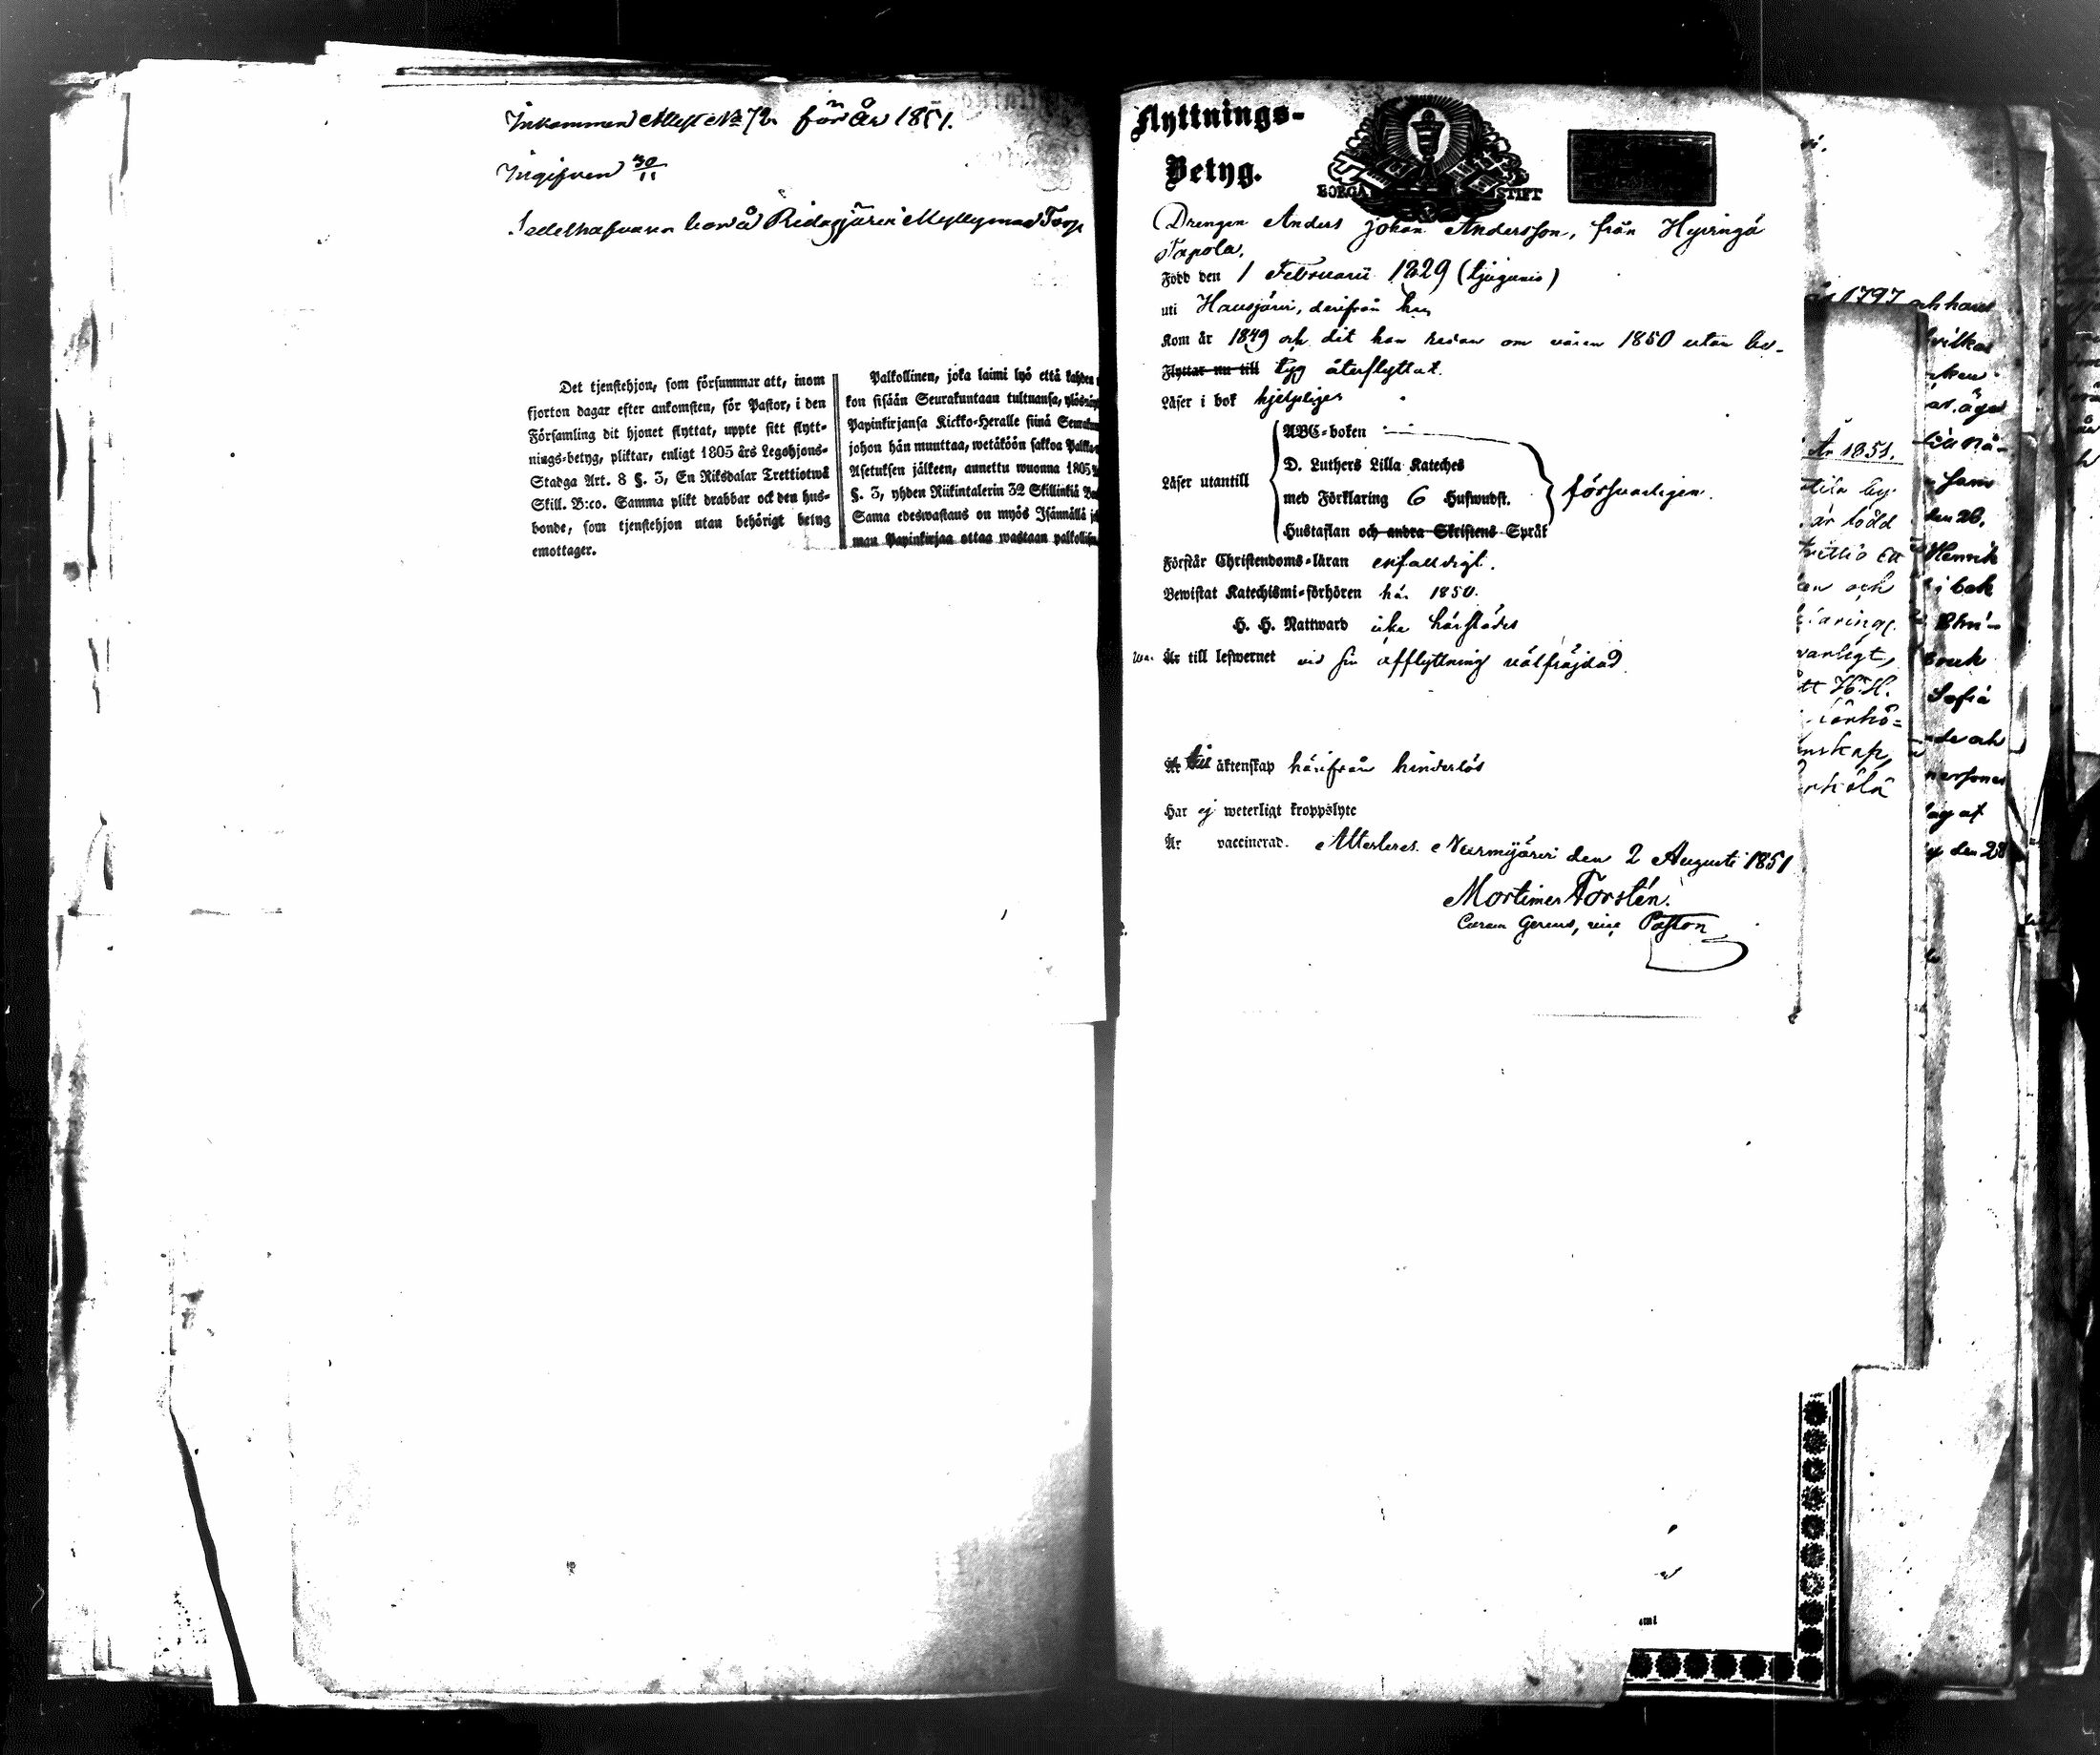 Inkommen Attest No 72. för År 1851.
Ingifven 30/11
bor å Ridasjärvi Myllymaa Torp
Det tjenstehjon, som försummar att, inom
fjorton dagar efter ankomsten, för Pastor, i den
Församling dit hjonet flyttat, uppte sitt flytt-
nings-betyg, pliktar, enligt 1805 års Legohjons-
Stadga Art. 8 §. 3, En Riksdalar Trettiotwå
Skill. B:co. Samma plikt drabbar ock den hus-
bonde, som tjenstehjon utan behörigt betyg
emottager.
Palkollinen, joka laimi lyö että kahden
kon sisään Seurakuntaan tultuansa,
Papinkirjansa Kirkko-Heralle siinä
johon hän munttaa, wetäköön sakkoa
Asetuksen jälkeen, annettu wuonna 1805
§. 3, yhden Riikintalerin 32 Skillinkiä
Sama edeswastaus on myös Isännällä
man Papinkirjaa ottaa wastaan
Flyttnings-
Betyg.
BORGÅ STIFT
Drengen Anders Johan Andersson, från Hyvingå
Tapola,
Född den 1 Februarii 1829 (tjugunio)
uti Hausjärvi, derifrån han
Kom år 1849 och dit han redan om våren 1850 utan be-
Flyttar nu till tyg återflyttat.
Läser i bok hjelpligen
Läser utantill
ABC-boken
D. Luthers Lilla Kateches
med Förklaring 6 Hufwudst.
Hustaflan och andra Skriftens Språk
försvarligen.
Förstår Christendoms-läran enfaldigt.
Bewistat Katechismi-förhören här 1850.
H. H. Nattward icke härstädes
War Är till lefwernet vid sin afflyttning välfräjdad
Är till äktenskap härifrån hinderlös
Har ej weterligt kroppslyte
Är vaccinerad. Attesteras. Nurmijärvi den 2 Augusti 1851
Mortimer Forstén.
Curam Gerens, vice Pastor
1797
År 1851.
är född
och
H. H.
och hans
den 26.
Henrik
i bok
Sofia
den 28